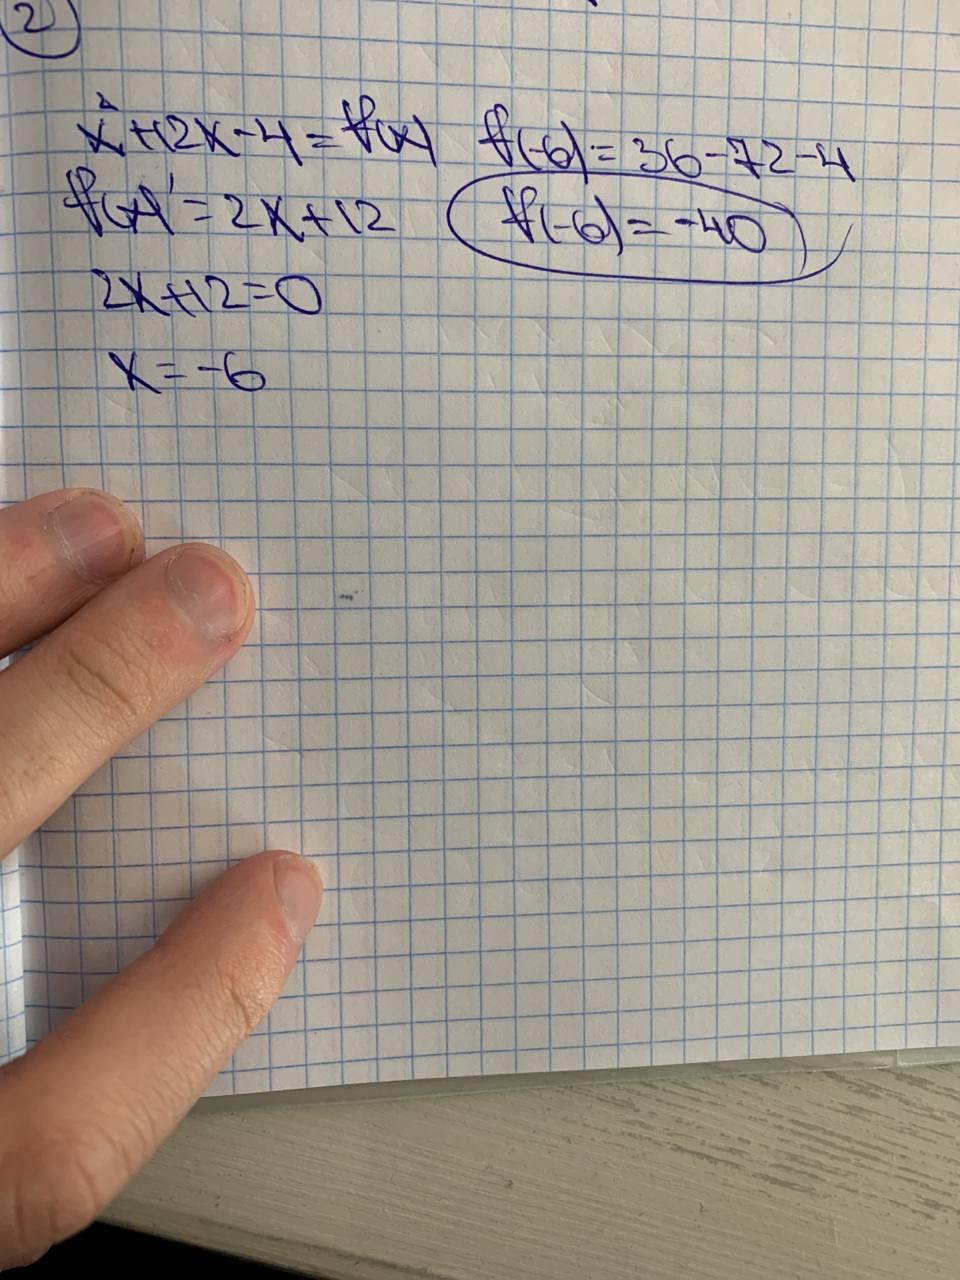 2
x²+12x-4=f(x)
f(x)'=2x+12
2x+12=0
x=-6
f(-6)=36-72-4
f(-6)=-40